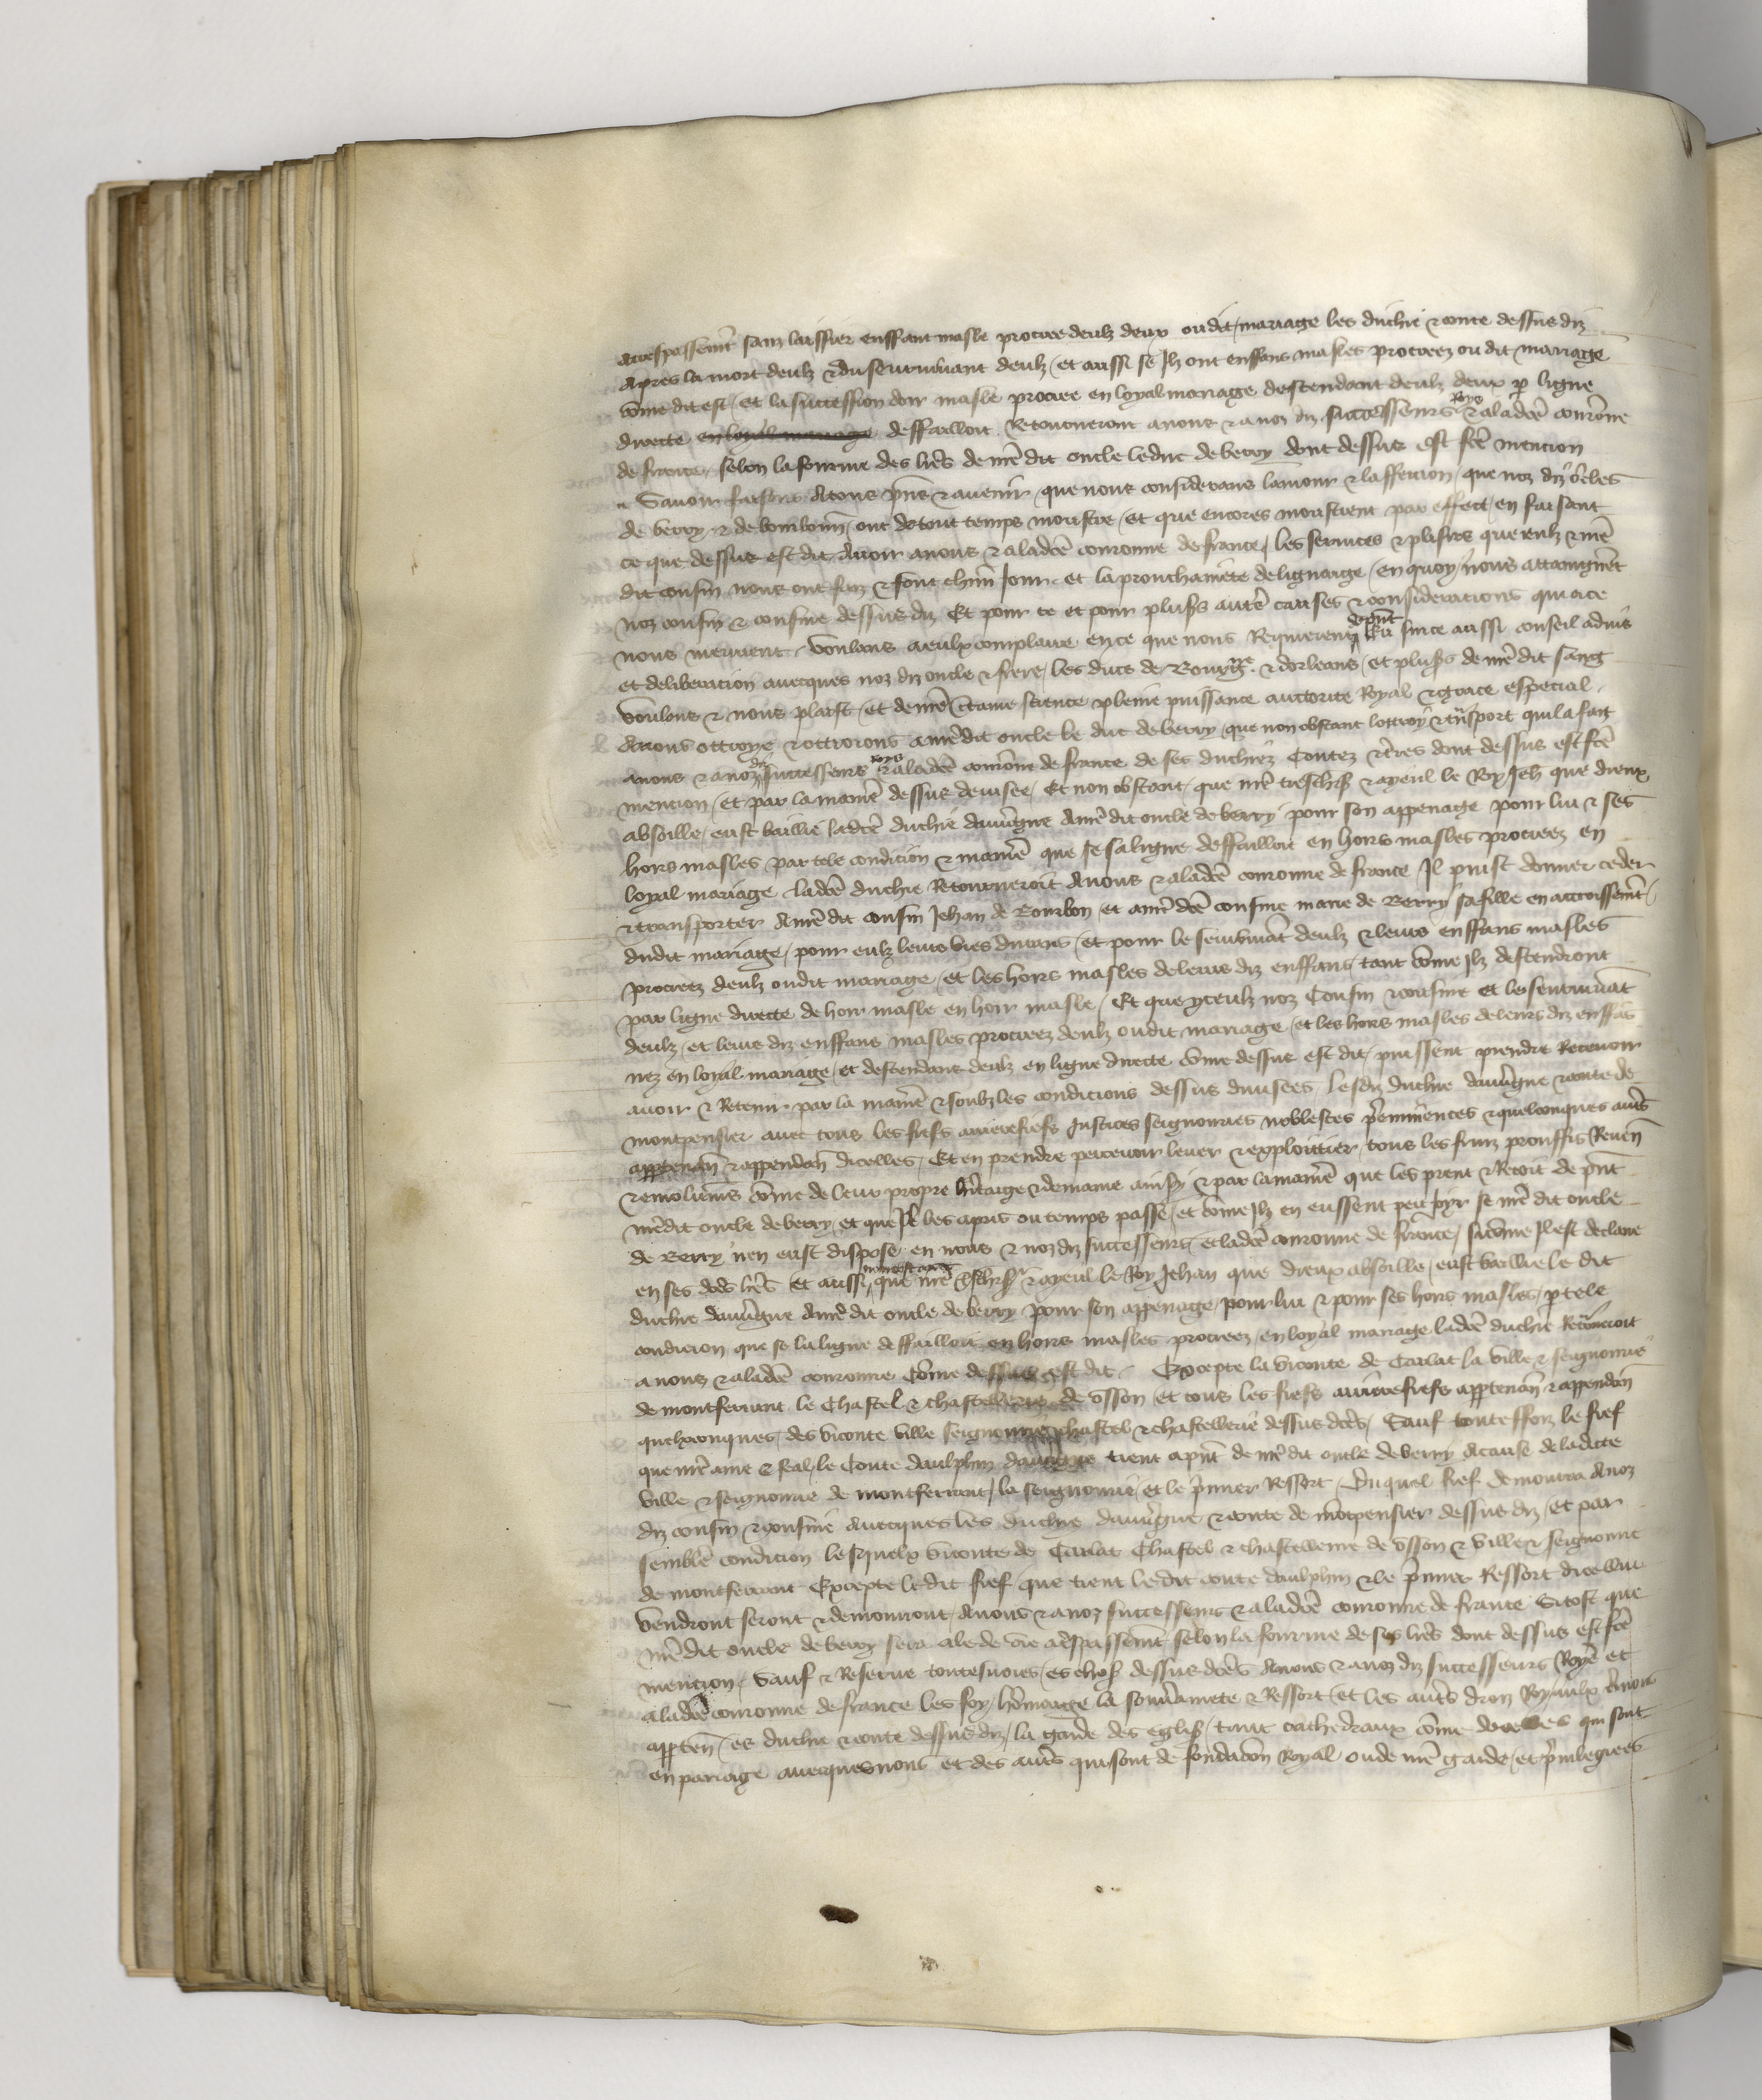 trespassement sanz laissier enffant masle procree deulz deux ou dit mariage les duchie & conte dessus diz
apres la mort deulz & du seurvivant deulz / et aussi se Ilz ont enffans masles procreez ou dit mariage
cōme dit est / et la succession doir masle procree en loyal mariage descendant deulz deux p ligne
directe en loyal mariage deffailloit Retourneront a nous & a noz diz successeurs Roys & a ladcē courōne
de france / selon la fourme des lrēs de nrē dit oncle le duc de berry dont dessus est fcē mencion
Savoir faisons A tous pn̄s & avenir / que nous considerans lamour & laffeccion / que noz diz oncles
de berry & de bourbonn̄ ont de tout temps moustre / et que encores moustrent par effect / en faisant
ce que dessus est dit Avoir a nous & a ladcē couronne de france / les services & plaisirs que eulz & nrē
dit cousin nous ont faiz & font chūn Jour et la prouchaineté de lignaige / en quoy nous attaingnent
noz cousin & cousine dessus diz Et pour ce et pour pluss autrē causes & consideracions qui a ce
nous meuvent / voulans a eulx complaire en ce que nous Requierent / Eu sur ce aussi conseil advis
et deliberacion avecques noz diz oncle & frere / les ducs de Bourgḡne & dorleans / et pluss de nrē dit sang
voulons & nous plaist / et de nrē c̄taine science pleine puissance auctorite Royal & grace especial
Avons ottroye & ottroions a nrē dit oncle le duc de berry / que non obstant lottroy & trāsport quil a fait
a nous & a noz diz successeurs roys & a ladcē courōne de france de ses duchiez Contez & tr̄res dont dessus est fcē
mencion / et par la manr̄e dessus devisee / Et non obstant / que nrē treschr̄ & ayeul le Roy Jeh que dieux
absoille / eust baillie ladcē duchie dauv̄gne A nrē dit oncle de berry pour son appenage pour lui & ses
hoirs masles par tele condicion & manr̄e que se sa ligne deffailloit en hoirs masles procreez en
loyal mariage ladcē duchie Retourneroit A nous & a ladcē couronne de france Il puist donner ceder
& transporter A nrē dit cousin Jehan de Bourbon / et a nrē dcē cousine marie de Berry sa fille en accroissemt̄ /
dudit mariage / pour eulz leurs vies durans / et pour le seurvivāt deulz & leurs enffans masles
procreez deulz oudit mariage / et les hoirs masles de leurs diz enffans / tant cōme Ilz descendront
par ligne directe de hoir masle en hoir masle / Et que yceulz noz Cousin & cousine et le seurvivāt
deulz / et leurs diz enffans masles procreez deulz oudit mariage / et les hoirs masles de leurs diz enffās
nez en loyal mariage / et descendans deulz en ligne directe cōme dessus est dit / puissent prendre Recevoir
avoir & Retenir par la manr̄e & soubz les condicions dessus divisees / lesdiz duchie dauv̄gne & conte de
montpensier avec tous les fiefs arrierefiefs Justices seignouries noblesses p̄eminences & quelconques autr̄s
apptenan̄ & appendan̄ dicelles / Et en prendre percevoir lever & exploittier / tous les fruiz prouffis Revēn
& emolumēs cōme de leur propre hr̄itaige & demaine ainsy & par la manr̄e que les prent & Recoit de pn̄t
nrē dit oncle de berry / et que Il les a pris ou temps passe / et cōme Ilz en eussent peu joyr se nrē dit oncle
de Berry nen eust dispose en nous & noz diz successeurs / et ladcē couronne de france / si cōme Il est declaire
en ses dcēs lrēs Et aussi nonobstant que nrē treschr̄ sʳ & ayeul le Roy Jehan que dieux absoille / eust baillie le dit
duchie dauv̄gne A nrē dit oncle de berry pour son appenage / pour lui & pour ses hoirs masles / p tele
condicion que se la ligne deffailloit en hoirs masles procreez / en loyal mariage ladcē duchie Retourneroit
a nous & a ladcē couronne Cōme dessus est dit / Excepte la viconte de Carlat la ville & seignourie
de montferrant le Chastel & chastellerie de Usson / et tous les fiefs arrierefiefs apptenan̄ & appendan̄
quelxconques / des viconte ville seignourie chastel & chastellerie dessus dcēs / Sauf toutesfoiz le fief
que nrē ame & feal / le Conte daulphin dauv̄gne tient a pn̄t de nrē dit oncle de berry A cause de ladicte
ville & seignourie de montferrant / la seignourie / et le p̄mier Ressort / Duquel fief demourra A noz
diz cousin & cousine Avecques les duchie dauv̄gne & conte de mōtpensier dessus diz / et par
semblē condicion lesquelx viconte de Carlat Chastel & chastellenie de Usson & ville & seignourie
de montferrant Excepte ledit fief que tient ledit conte daulphin & le p̄mier Ressort dicellui
vendront seront & demourront A nous & a noz successeurs & a ladcē couronne de france Sitost que
nrē dit oncle de berry sera ale de vie a trēspassemt̄ selon la fourme de ses lrēs dont dessus est fcē
mencion / Sauf & Reserve toutesvoies / es chos dessus dcēs A nous & a noz diz successeurs Roys et
a ladcē couronne de france les foy / hōmaige la souv̄ainete & Ressort / et les autr̄s droiz Royaulx a nous
apptēn / es duchie & conte dessus diz / la garde des eglis / tant cathedraux cōme dicelles qui sont
en pariage avecques nous et des autr̄s qui sont de fondacōn Royal ou de nrē garde / et p̄vilegiees